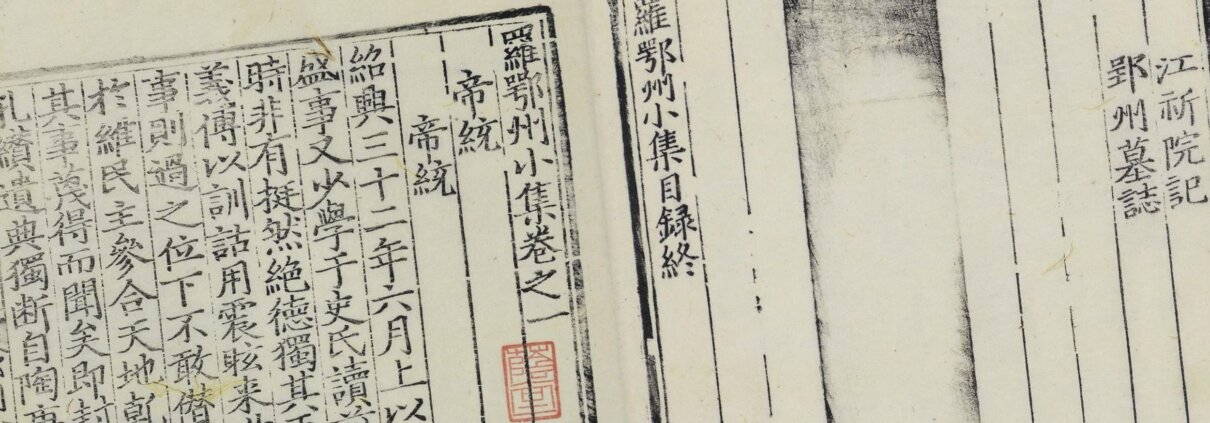 江祈院記
郢州墓誌
羅鄂州小集目録終
羅鄂州小集卷之一
帝統
帝統
紹興三十二年六月上以
盛事又少學于史氏讀前
時非有挺然絶德獨其
義傅以訓詁用震眩来
事則過之位下不敢僭
於維民主參合天地
其事蔑得而聞矣即封
孔纘遺典獨断自陶唐